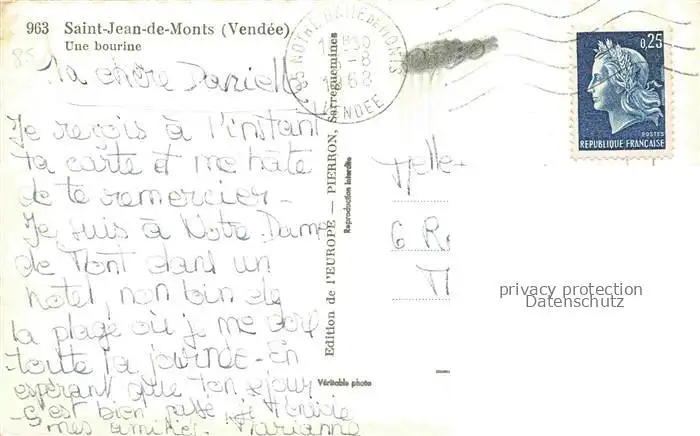 963 Saint-Jean-de-Monts (Vendée)
Une bourine
85
Ma chère Danielle
Je reçois à l'instant
ta carte et me hâte
de te remercier -
Je suis à Notre Dame
de Mont dans un
hotel, non loin de
la plage où je me dore
toute la journée - En
espérant que ton séjour
s'est bien passé
mes amitiés. Marianne
Edition de l'EUROPE — PIERRON, Sarreguemines
Reproduction interdite
Véritable photo
85 NOTRE DAME DE MONTS
VENDÉE
0,25
POSTES
REPUBLIQUE FRANÇAISE
Melle
6 R
privacy protection
Datenschutz